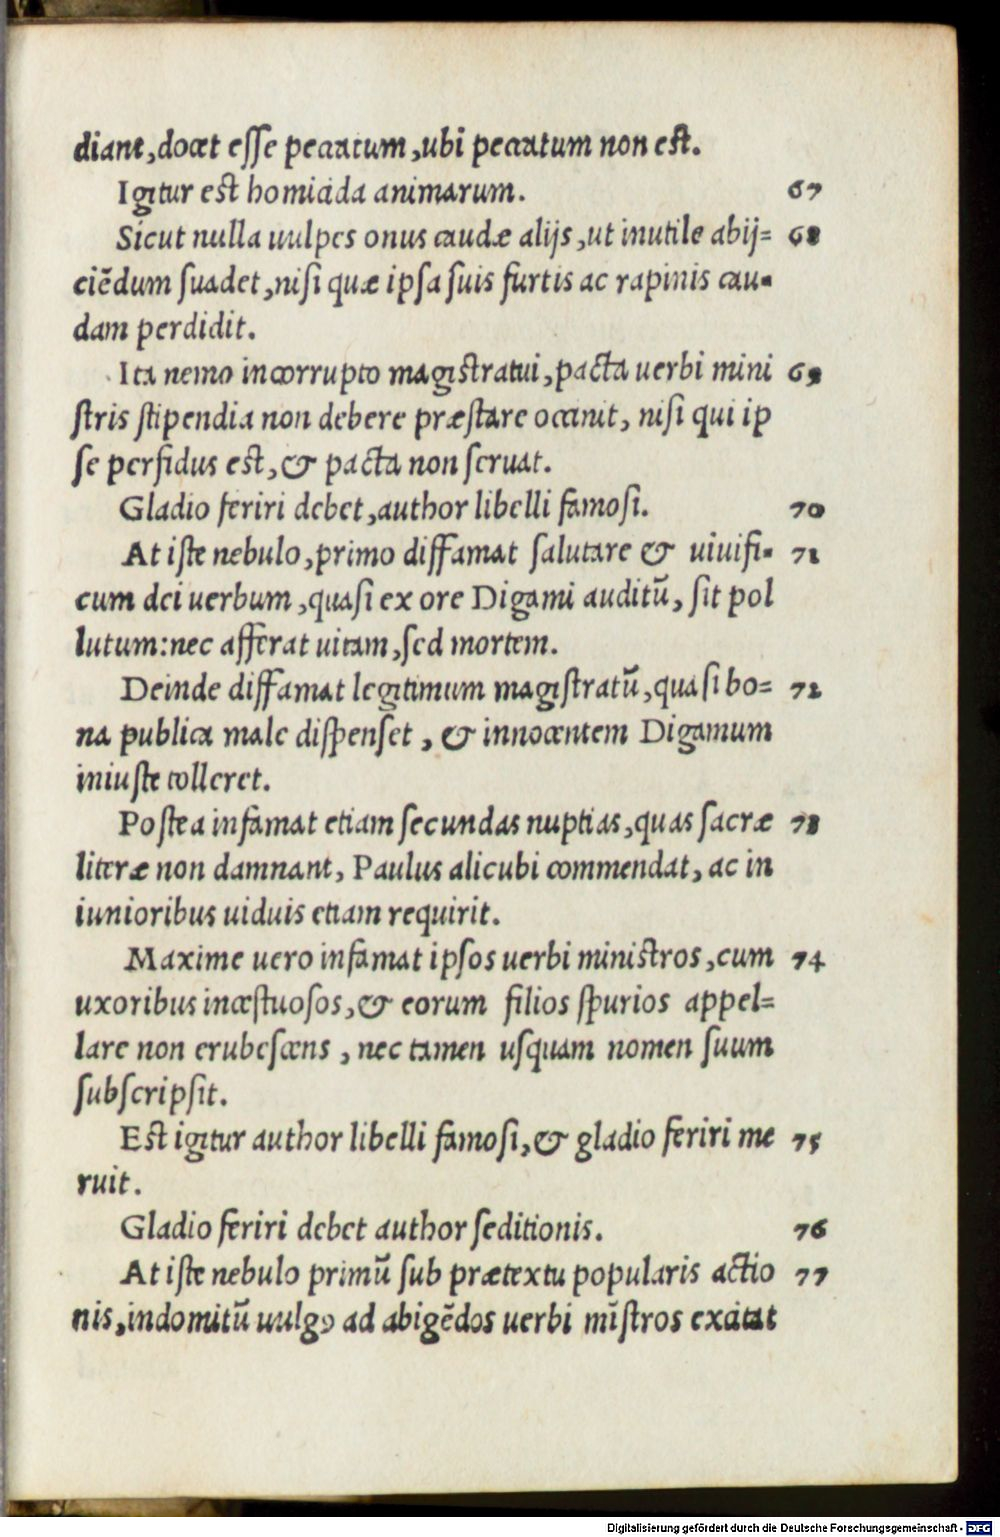 diant, docet esse peccatum, ubi peccatum non est.
Igitur est homicida animarum. 67
Sicut nulla uulpes onus caudæ alijs, ut inutile abij= 68
ciẽdum suadet, nisi quæ ipsa suis furtis ac rapinis cau-
dam perdidit.
Ita nemo incorrupto magistratui, pacta uerbi mini 69
stris stipendia non debere præstare occinit, nisi qui ip
se perfidus est, & pacta non seruat.
Gladio feriri debet, author libelli famosi. 70
At iste nebulo, primo diffamat salutare & uiuifi- 71
cum dei uerbum, quasi ex ore Digami auditũ, sit pol
lutum: nec afferat uitam, sed mortem.
Deinde diffamat legitimum magistratũ, quasi bo= 72
na publica male dispenset, & innocentem Digamum
iniuste tolleret.
Postea infamat etiam secundas nuptias, quas sacræ 73
literæ non damnant, Paulus alicubi commendat, ac in
iunioribus uiduis etiam requirit.
Maxime uero infamat ipsos uerbi ministros, cum 74
uxoribus incæstuosos, & eorum filios spurios appel=
lare non erubescens, nec tamen usquam nomen suum
subscripsit.
Est igitur author libelli famosi, & gladio feriri me 75
ruit.
Gladio feriri debet author seditionis. 76
At iste nebulo primũ sub prætextu popularis actio 77
nis, indomitũ uulgꝯ ad abigẽdos uerbi mĩstros excitat
Digitalisierung gefördert durch die Deutsche Forschungsgemeinschaft - DFG